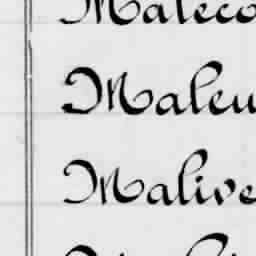 Maleco
Maleu
Malive